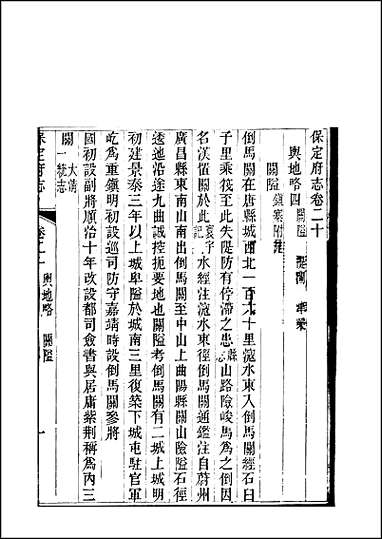 保定府志卷二十
輿地略四 關隘 隄閘 津梁
關隘 鎮寨附註
倒馬關在唐縣城西北一百六十里滱水東入倒馬關經石臼
子里乘筏至此失隄防有停滯之患縣志山路險峻馬為之倒因
名漢置關於此寰宇記水經注滱水東徑倒馬關通鑑注自蔚州
廣昌縣東南山南出倒馬關至中山上曲陽縣關山險隘石徑
逶迤沿途九曲誠控扼要地也關隘考倒馬關有二城上城明
初建景泰三年以上城卑隘於城南三里復築下城屯駐官軍
屹為重鎮明初設巡司防守嘉靖時設倒馬關參將
國初設副將順治十年改設都司僉書與居庸紫荊稱為內三
關 大清一統志
保定府志 卷二十 輿地略 關隘 一